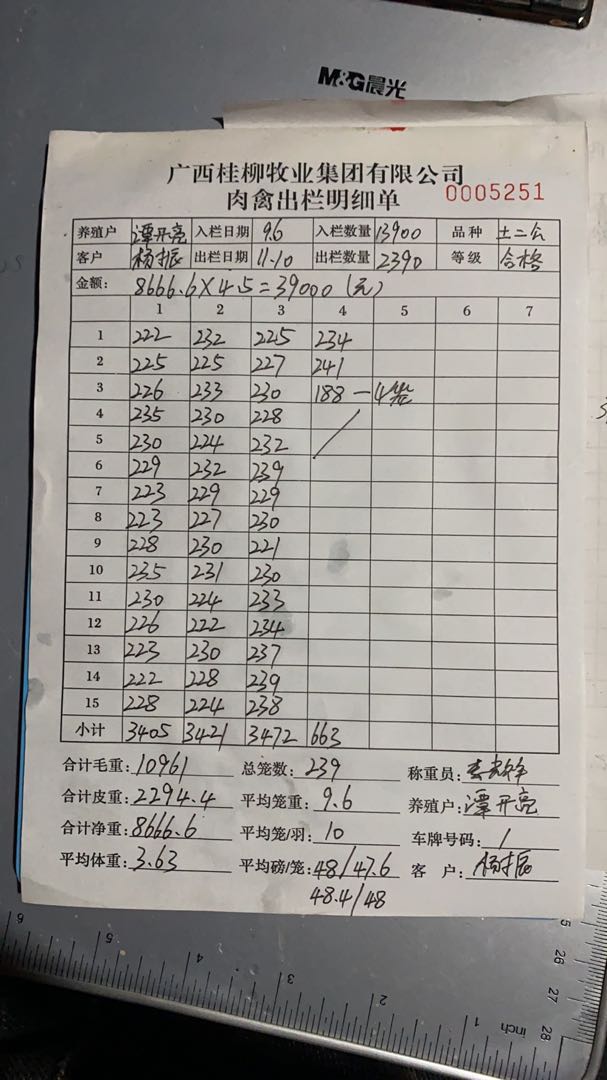 M&G晨光
广西桂柳牧业集团有限公司
肉禽出栏明细单 0005251
养殖户 潭开亮 入栏日期 9.6 入栏数量 13900 品种 土二公
客户 杨振 出栏日期 11.10 出栏数量 2390 等级 合格
金额: 8666.6×4.5=39000(元)
1 2 3 4 5 6 7
1 222 232 225 234
2 225 225 227 241
3 226 233 230 188 — 4笼
4 235 230 228
5 230 224 232
6 229 232 239
7 223 229 229
8 223 227 230
9 228 230 221
10 235 231 230
11 230 224 233
12 226 222 234
13 223 230 237
14 222 228 239
15 228 224 238
小计 3405 3421 3472 663
合计毛重: 10961 总笼数: 239 称重员:
合计皮重: 2294.4 平均笼重: 9.6 养殖户: 潭开亮
合计净重: 8666.6 平均笼/羽: 10 车牌号码: /
平均体重: 3.63 平均磅/笼: 48/47.6 客户: 杨振
48.4/48
6 5 4 3 2 1 inch
25 26 27 28